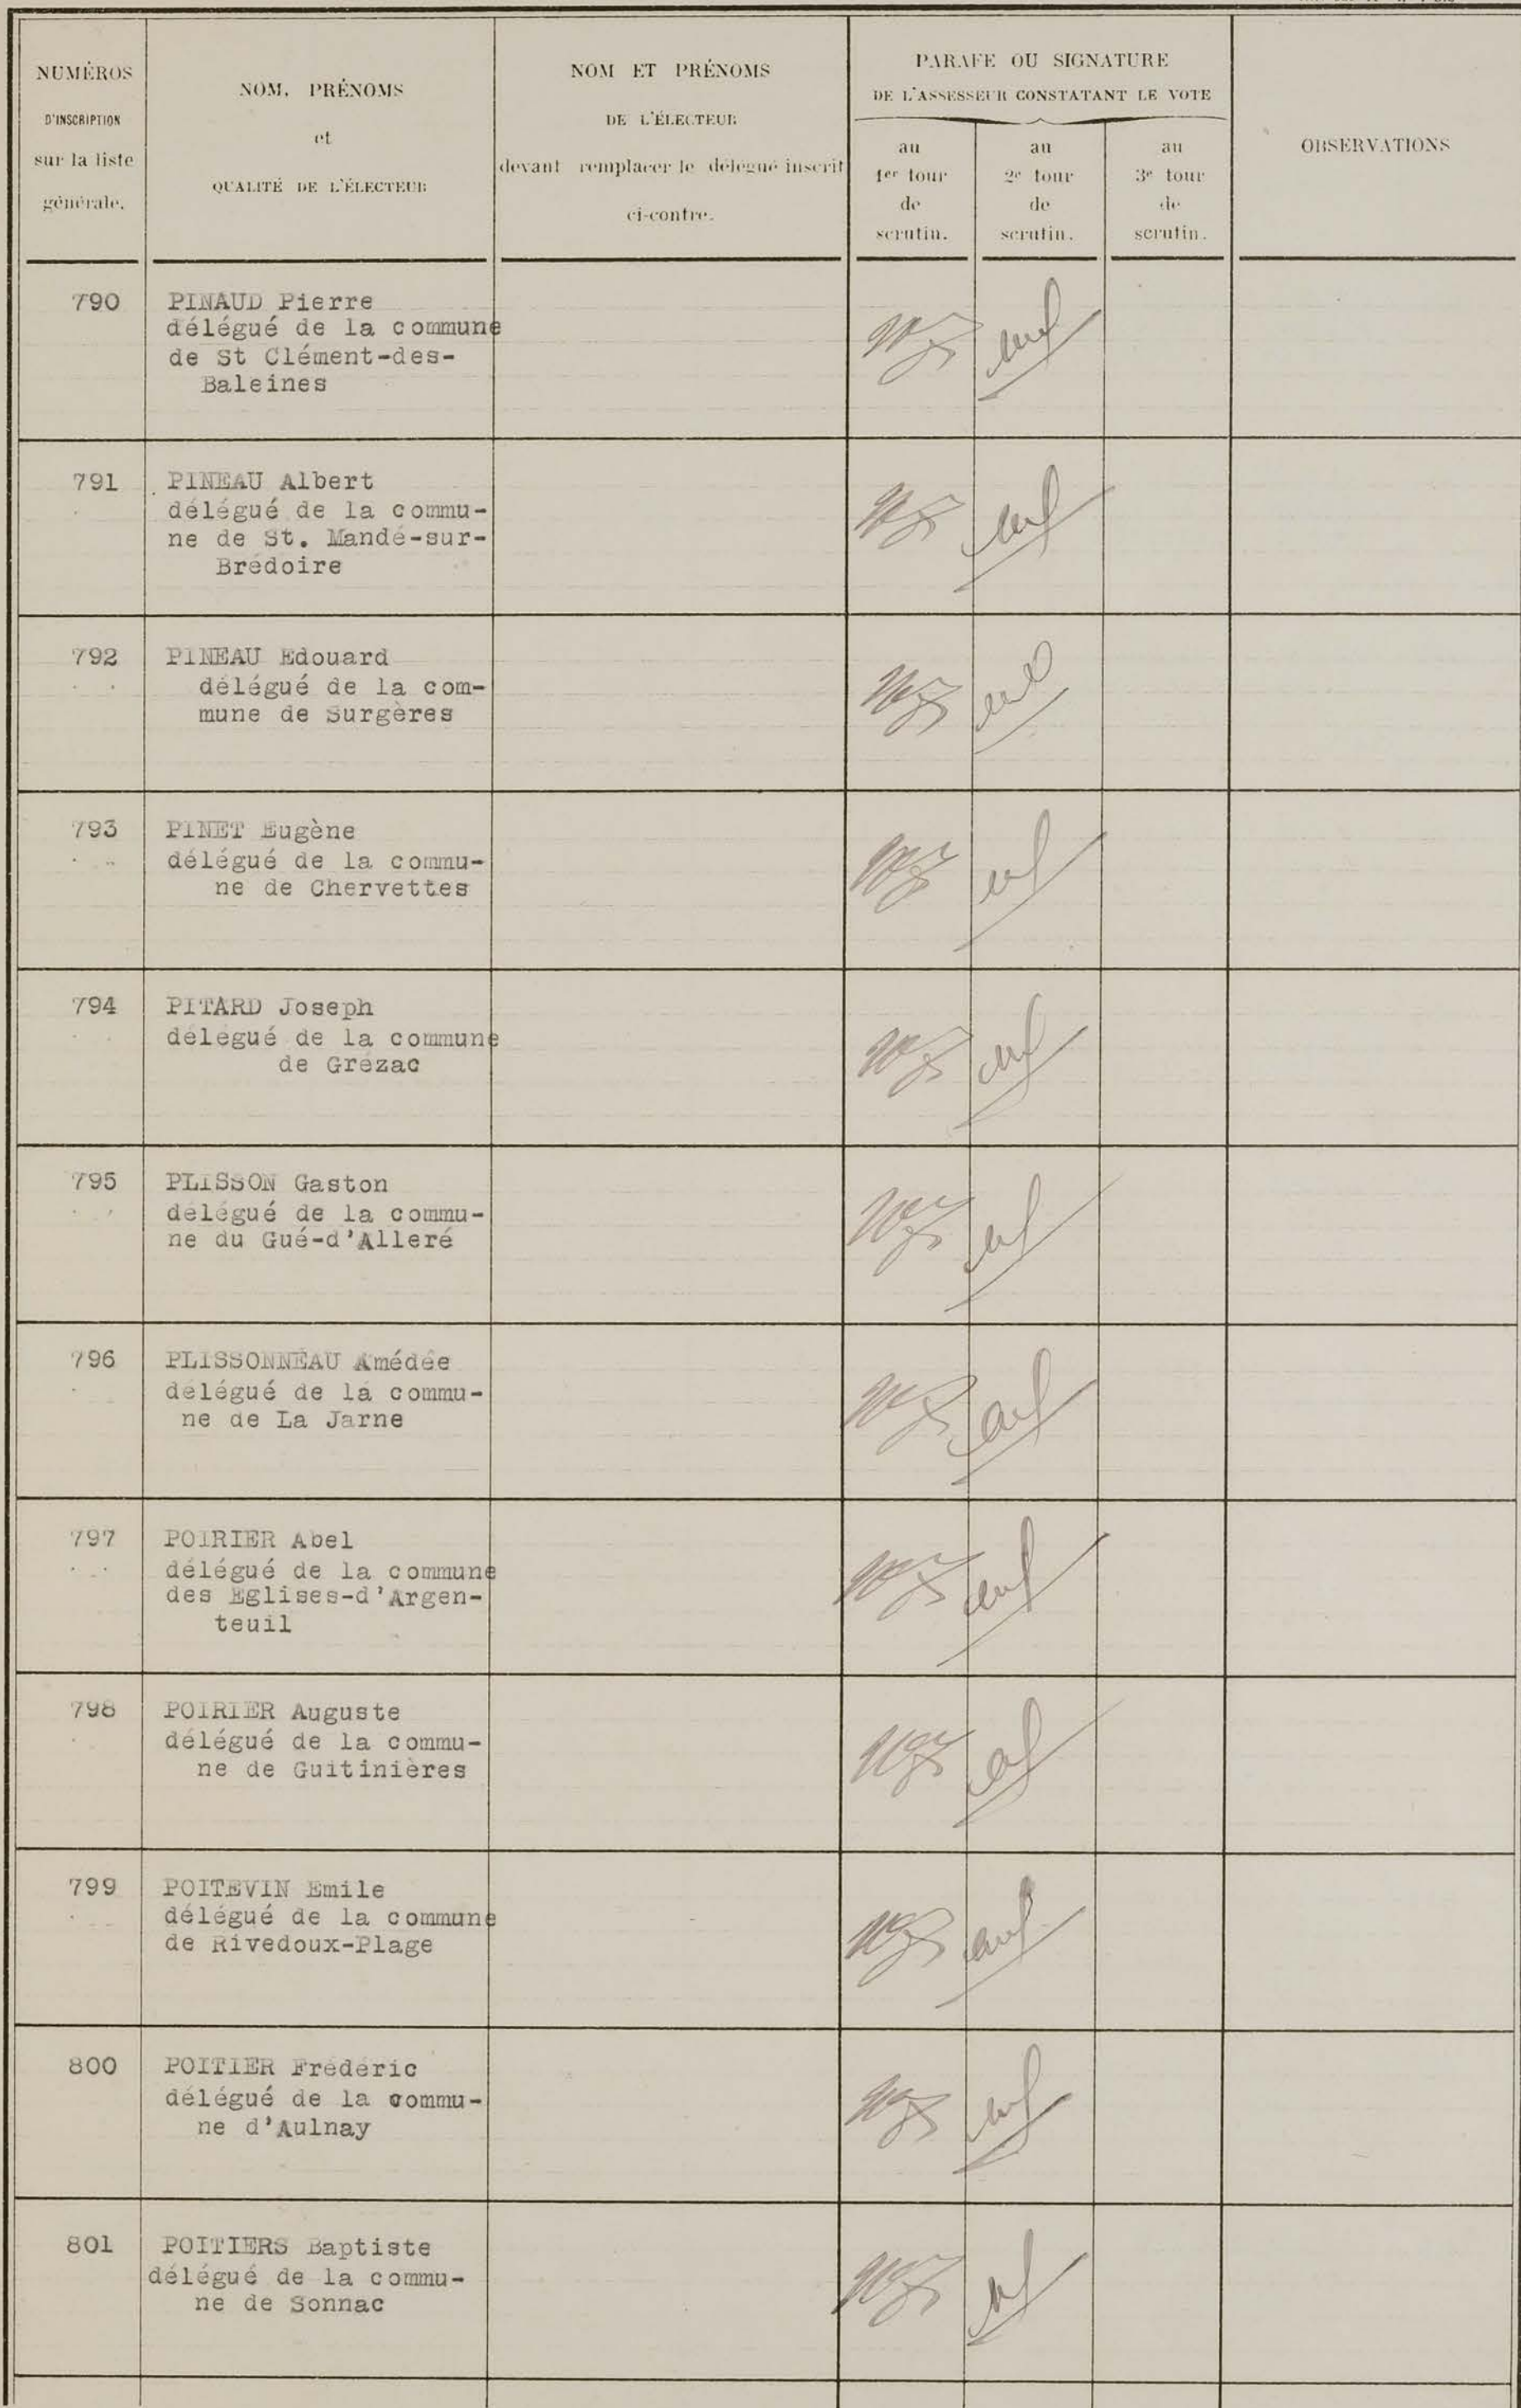 NUMÉROS
D'INSCRIPTION
sur la liste
générale.
NOM, PRÉNOMS
et
QUALITÉ DE L'ÉLECTEUR
NOM ET PRÉNOMS
DE L'ÉLECTEUR
devant remplacer le délégué inscrit
ci-contre.
PARAFE OU SIGNATURE
DE L'ASSESSEUR CONSTATANT LE VOTE
au
1er tour
de
scrutin.
au
2e tour
de
scrutin.
au
3e tour
de
scrutin.
OBSERVATIONS
790
PINAUD Pierre
délégué de la commune
de St Clément-des-
Baleines
791
PINEAU Albert
délégué de la commu-
ne de St. Mandé-sur-
Brédoire
792
PINEAU Edouard
délégué de la com-
mune de Surgères
793
PINET Eugène
délégué de la commu-
ne de Chervettes
794
PITARD Joseph
délégué de la commune
de Grézac
795
PLISSON Gaston
délégué de la commu-
ne du Gué-d'Alleré
796
PLISSONNEAU Amédée
délégué de la commu-
ne de La Jarne
797
POIRIER Abel
délégué de la commune
des Eglises-d'Argen-
teuil
798
POIRIER Auguste
délégué de la commu-
ne de Guitinières
799
POITEVIN Emile
délégué de la commune
de Rivedoux-Plage
800
POITIER Frédéric
délégué de la commu-
ne d'Aulnay
801
POITIERS Baptiste
délégué de la commu-
ne de Sonnac